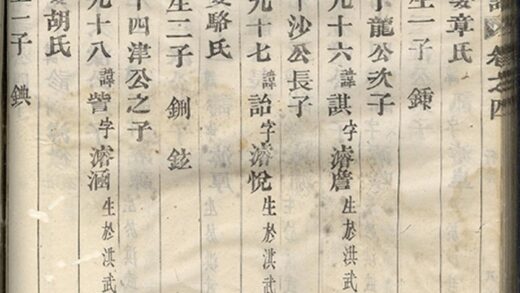 卷之四
娶章氏
生一子 鍾
龍公次子
九十六 諱諆字濬詹 生於洪武
十沙公長子
九十七 諱詒字濬悅 生於洪武
娶駱氏
生二子 鉶 鉉
十四津公之子
九十八 諱訾字濬涵 生於洪武
娶胡氏
生一子 錪